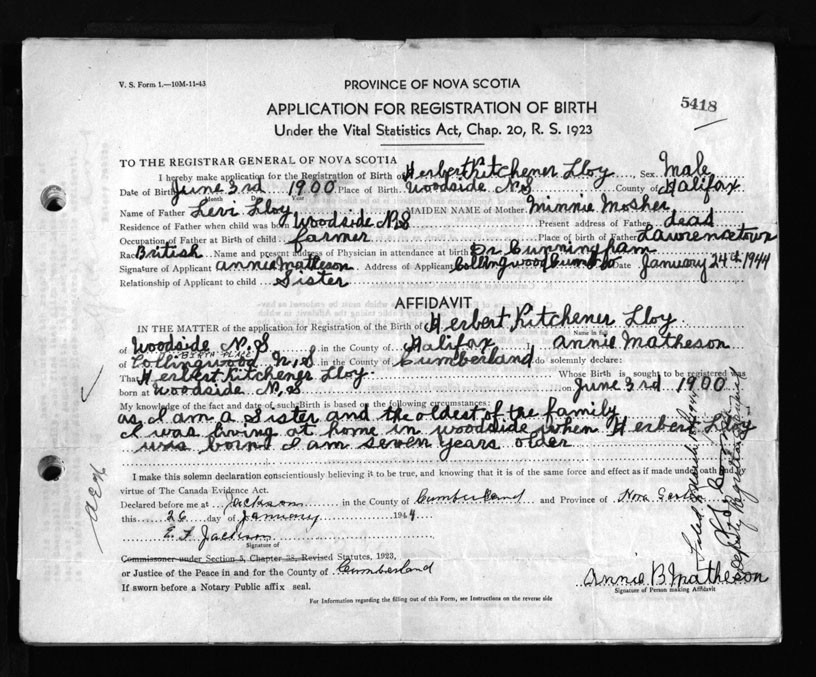 V. S. Form 1.—10M-11-43
PROVINCE OF NOVA SCOTIA
5418
APPLICATION FOR REGISTRATION OF BIRTH
Under the Vital Statistics Act, Chap. 20, R. S. 1923
TO THE REGISTRAR GENERAL OF NOVA SCOTIA
I hereby make application for the Registration of Birth of Herbert Kitchener Lloy, Sex Male
Date of Birth June 3rd 1900 Place of Birth Woodside N.S County of Halifax
Month Year
Name of Father Levi Lloy MAIDEN NAME of Mother Minnie Mosher
Residence of Father when child was born Woodside N.S Present address of Father dead
Occupation of Father at Birth of child farmer Place of birth of Father Lawrencetown
Race British Name and present address of Physician in attendance at birth Dr Cunningham
Signature of Applicant annie Matheson Address of Applicant Collingwood Cumb Co Date January 24th 1944
Relationship of Applicant to child Sister
AFFIDAVIT
IN THE MATTER of the application for Registration of the Birth of Herbert Kitchener Lloy
Name in full
of Woodside N.S in the County of Halifax, I annie Matheson
BIRTH PLACE
of Collingwood N.S in the County of Cumberland do solemnly declare:
That Herbert Kitchener Lloy Whose Birth is sought to be registered was
born at Woodside N.S on June 3rd 1900
My knowledge of the fact and date of such Birth is based on the following circumstances:
as I am a Sister and the oldest of the family
I was living at home in woodside when Herbert Lloy
was born I am seven years older
I make this solemn declaration conscientiously believing it to be true, and knowing that it is of the same force and effect as if made under oath and by
virtue of The Canada Evidence Act.
Declared before me at Jackson in the County of Cumberland and Province of Nova Scotia
this 26 day of January 1944
E. F. Jackson
Signature of
Commissioner under Section 5, Chapter 38, Revised Statutes, 1923,
or Justice of the Peace in and for the County of Cumberland
If sworn before a Notary Public affix seal.
Annie B Matheson
Signature of Person making Affidavit
For Information regarding the filling out of this Form, see Instructions on the reverse side
Deputy Registrar